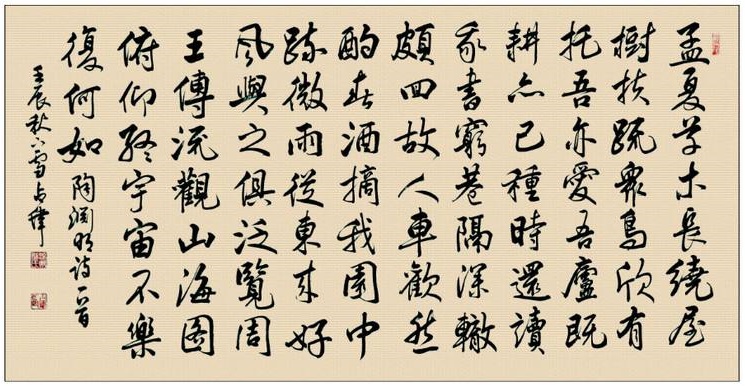 孟夏草木長繞屋
樹扶疏眾鳥欣有
托吾亦愛吾廬既
耕亦已種時還讀
我書窮巷隔深轍
頗回故人車歡然
酌春酒摘我園中
蔬微雨從東來好
風與之俱泛覽周
王傳流觀山海圖
俯仰終宇宙不樂
復何如 陶淵明詩一首
壬辰秋